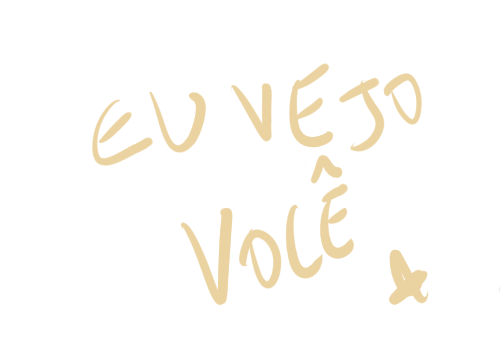 EU VEJO
VOCÊ